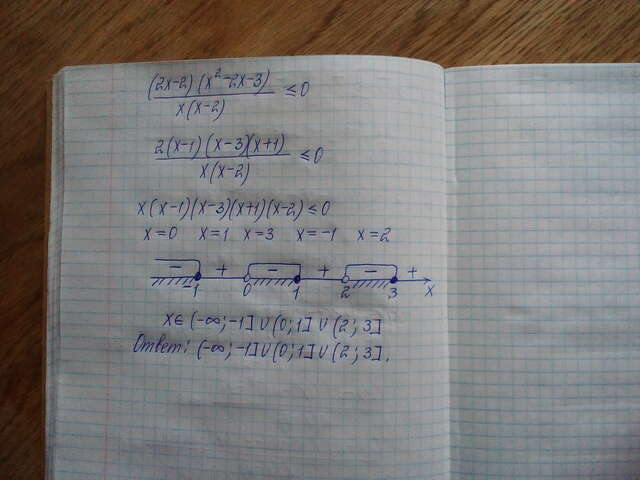 (2x-2)(x²-2x-3)/x(x-2) ≤0
2(x-1)(x-3)(x+1)/x(x-2) ≤0
x(x-1)(x-3)(x+1)(x-2)≤0
x=0 x=1 x=3 x=-1 x=2
- + - + - +
-1 0 1 2 3 x
x∈(-∞;-1]∪(0;1]∪(2;3]
Ответ: (-∞;-1]∪(0;1]∪(2;3].